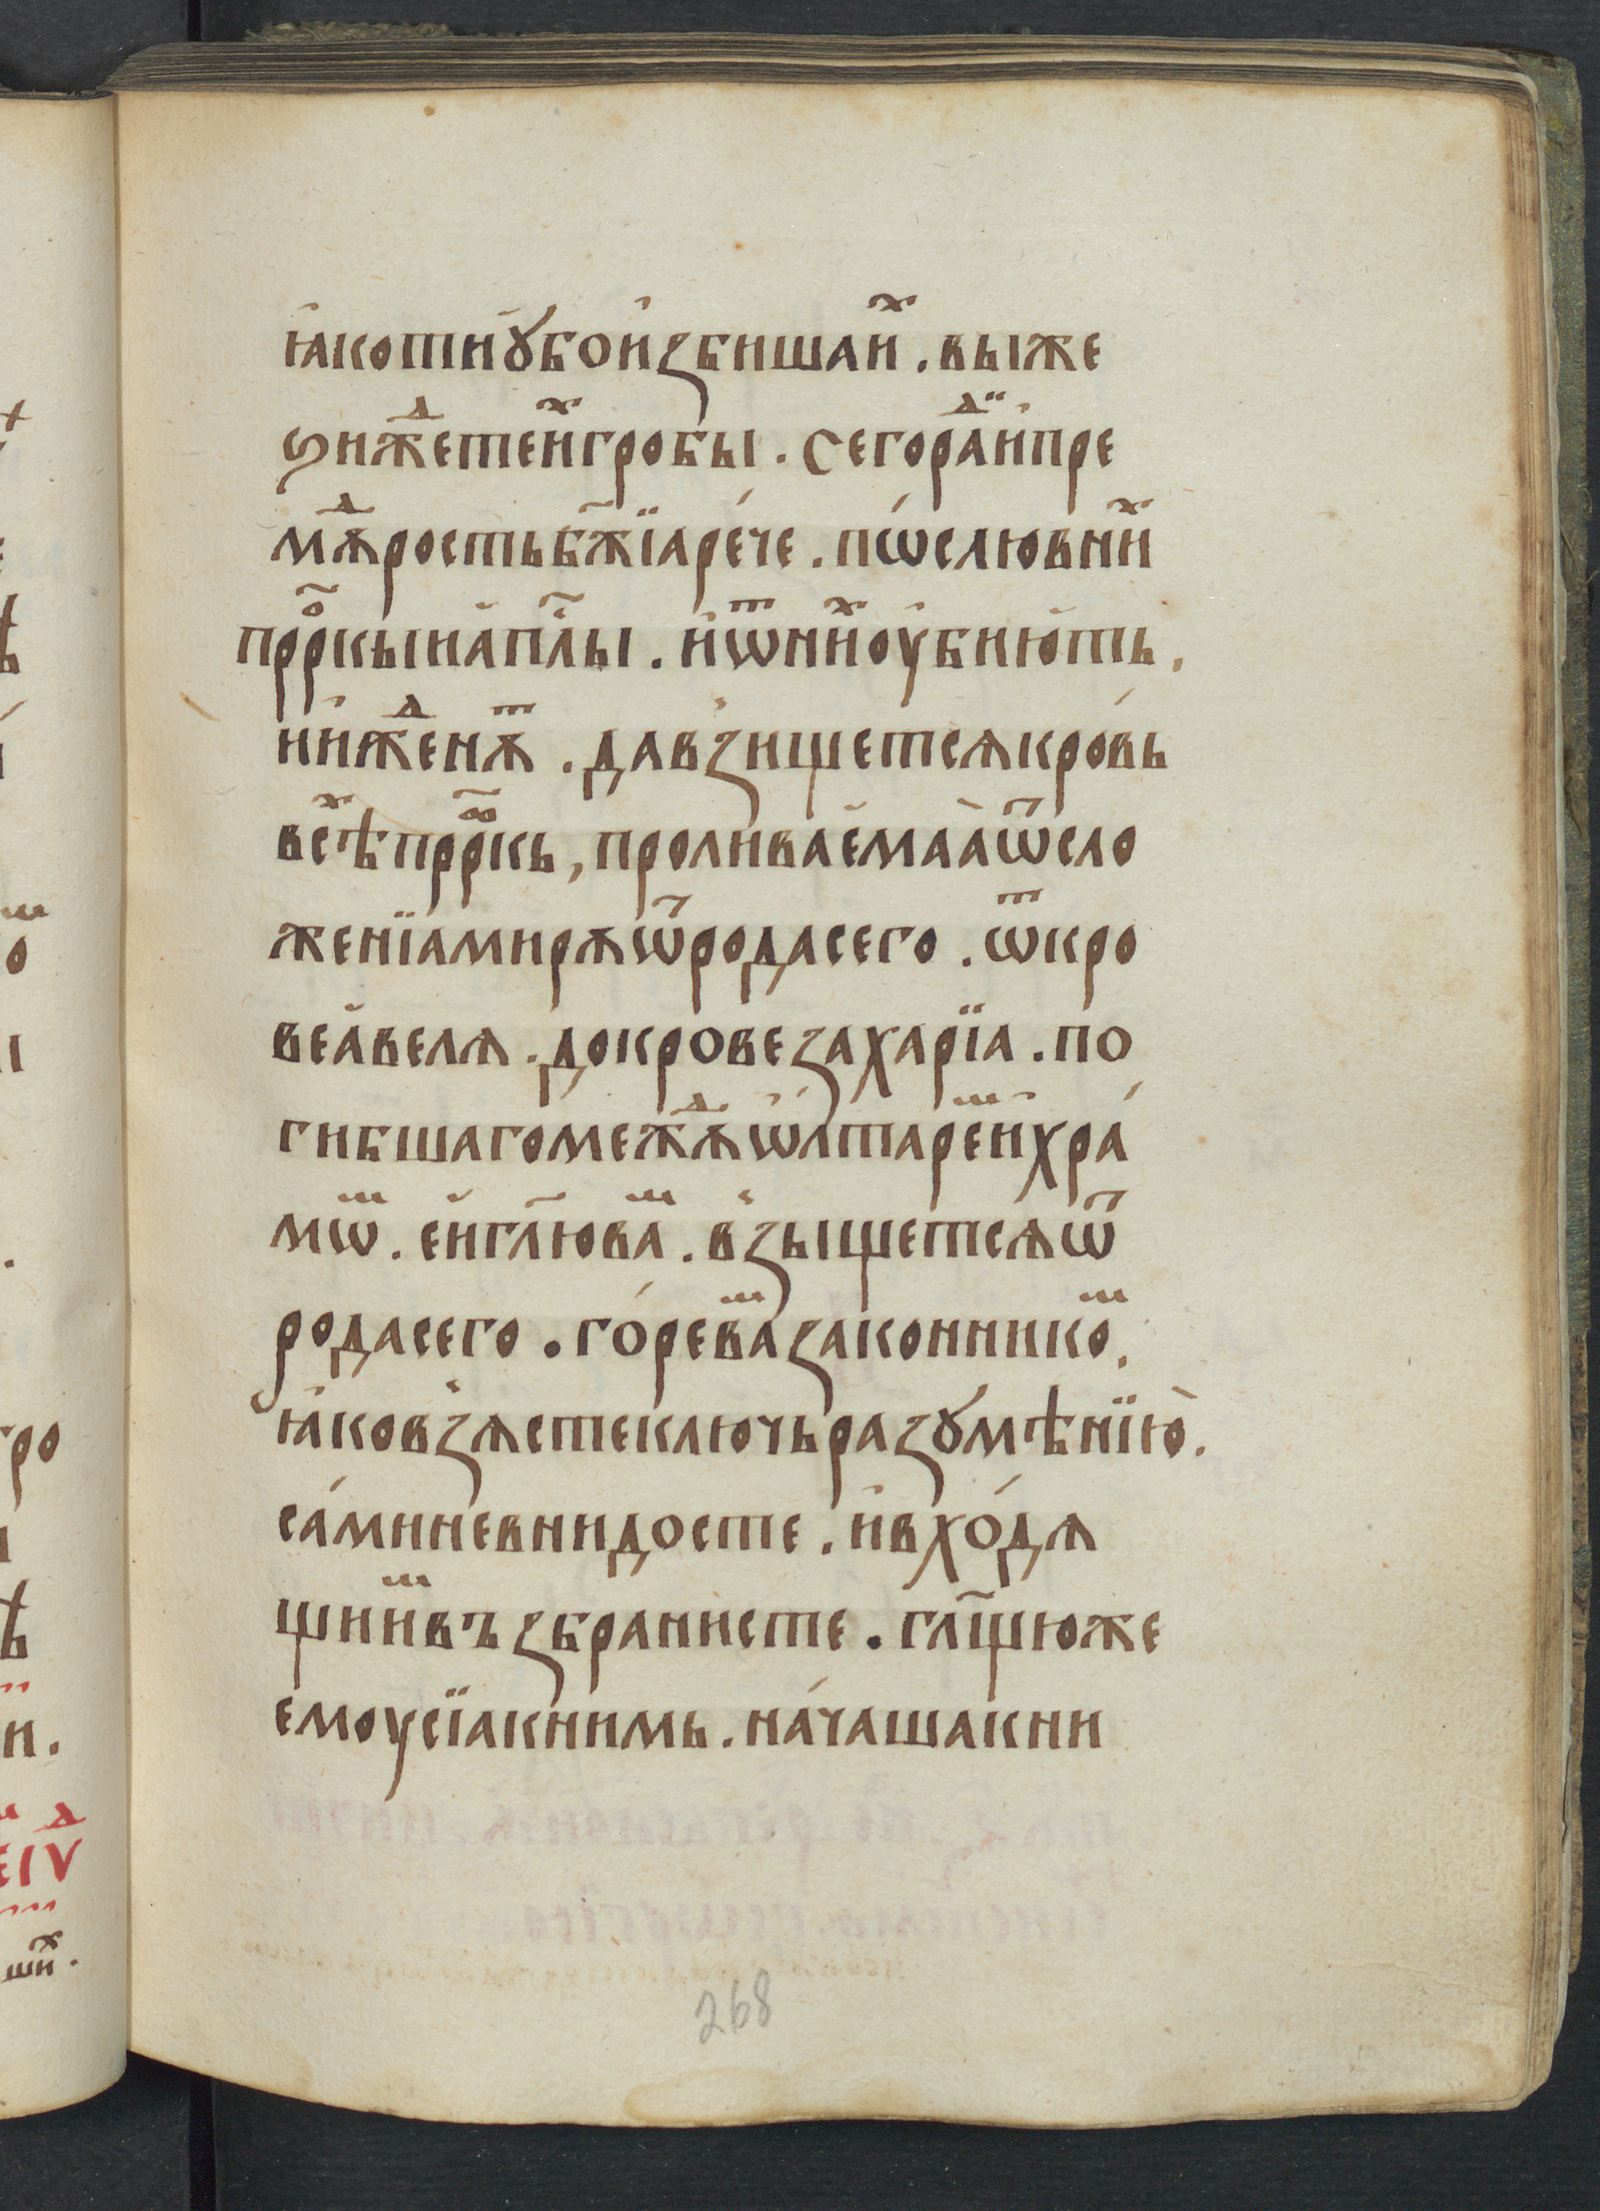 ꙗ҆котїи҆ꙋбои҆ꙁбишаи҆ⷯ . выже
ѕиже́ⷣтеи҆ⷯгробы . Сегора́ⷣи҆пре
мѫⷣростьб҃жїаре́че . пѡ́слювни́ⷯ
прⷪ҇ркыи҆а҆пⷭ҇лы . и҆ѿни́ⷯоу҆бию҆ть .
ни҆жеⷣнѫⷮ . давꙁищетсѧкро́вь
все́ⷯѣпрⷪ҇ркь , пролива́ема́аѿсло
женїамирѫѿродасего . ѿкро
веа҆велѧ . докровеꙁахарїа . по
гибшагомежⷣѫѡ҆лтаре́ⷨи҆хра́
мѡⷨ . еи҆гл҃юваⷨ . в꙽ꙁыщетсѧѿ
родасего . го́реваⷨꙁаконникоⷨ .
ꙗ҆ков꙽ꙁѧстеключьраꙁꙋмѣнїю̀ .
са́миневнидосте . и҆вхо́дѧ
щииⷨвъꙁбранисте . гл҃щюже
емоусїакнимь . на́чашакни
268